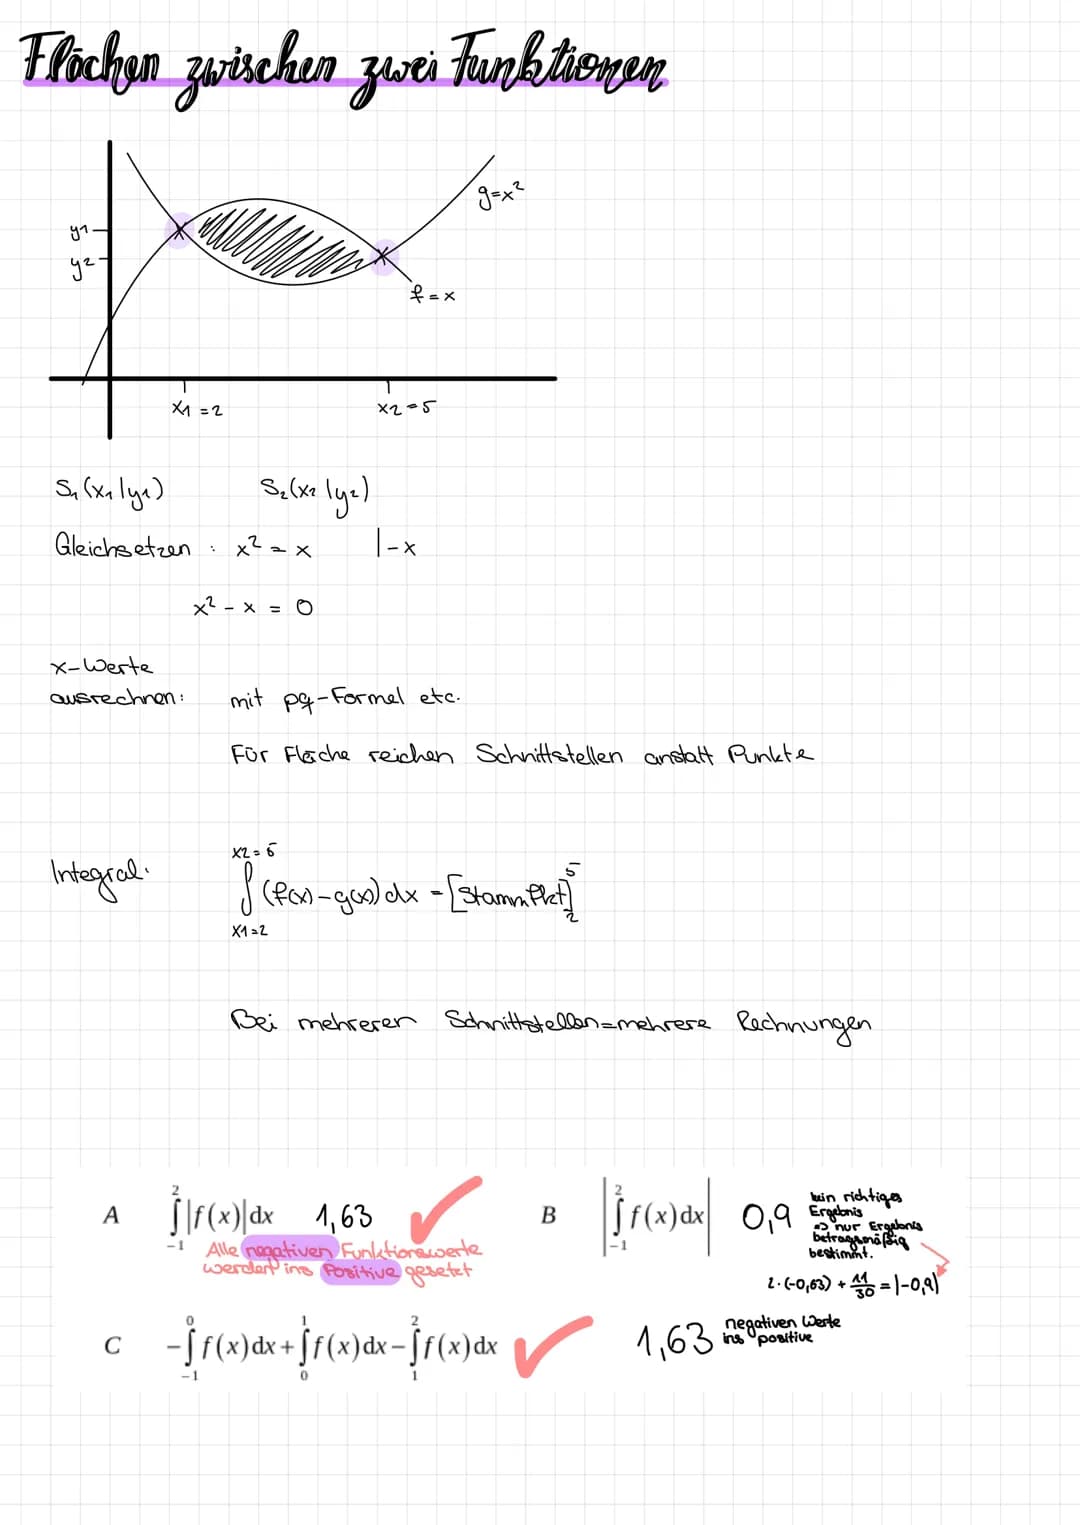 Flächen zwischen zwei Funktionen
g=x²
y1
y2
f=x
x1=2
x2=5
S₁(x₁|y₁) S₂(x₂|y₂)
Gleichsetzen: x² = x |-x
x² - x = 0
x-Werte
ausrechnen: mit pq-Formel etc.
Für Fläche reichen Schnittstellen anstatt Punkte
x2=5
Integral: ∫(f(x)-g(x))dx = [Stammfkt]⁵₂
x1=2
Bei mehreren Schnittstellen=mehrere Rechnungen
A ∫₋₁²|f(x)|dx 1,63
Alle negativen Funktionswerte
werden ins Positive gesetzt
B |∫₋₁² f(x)dx| 0,9
kein richtiges
Ergebnis
=> nur Ergebnis
betragsmäßig
bestimmt.
2·(-0,63) + 11/30 = |-0,9|
C -∫₋₁⁰ f(x)dx + ∫₀¹ f(x)dx - ∫₁² f(x)dx
1,63 negativen Werte
ins positive